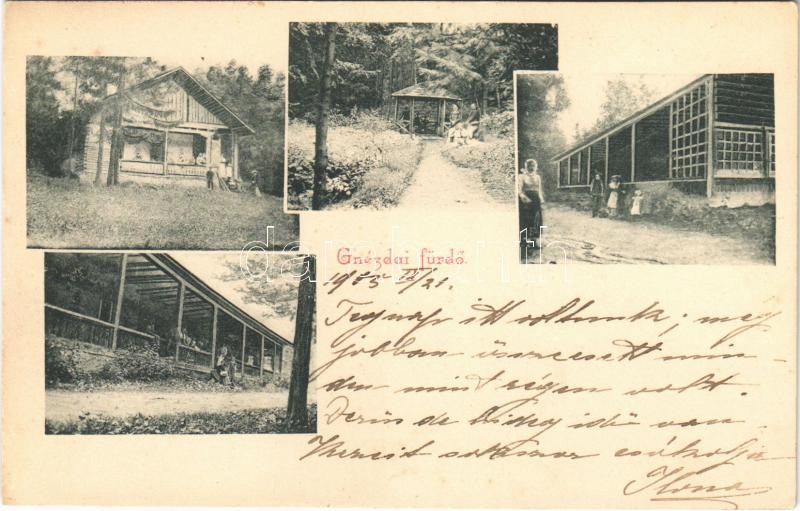 Gnézdai fürdő.
1905 IV/21.
Tegnap itt voltunk; még
jobban összeesett min-
den mint régen volt.
Derüs de hideg idő van.
sokszor csókolja
Ilona